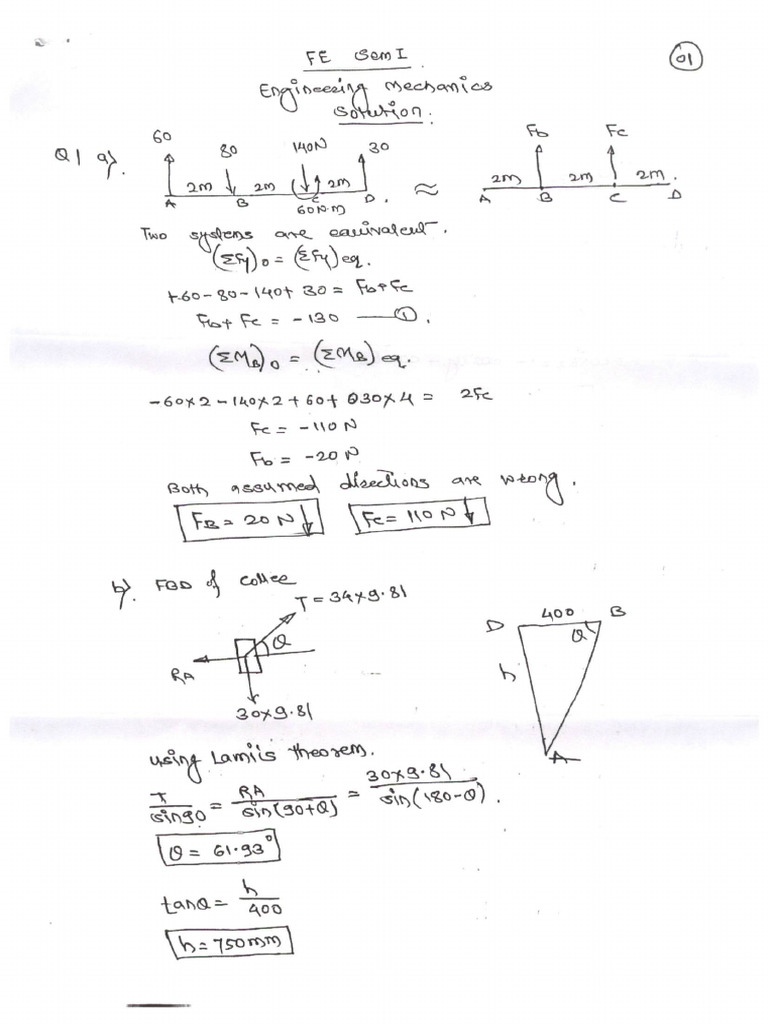 FE Sem I
01
Engineering Mechanics
Solution:
Q1 a).
60 80 140N 30
2m 2m 2m
A B C D.
60N.m
≈
Fb Fc
2m 2m 2m.
A B C D
Two systems are equivalent.
(ΣFy)o = (ΣFy)eq.
+60-80-140+30 = Fb+Fc
Fb+Fc = -130 ——①.
(ΣMB)o = (ΣMB)eq.
-60×2-140×2+60+030×4 = 2Fc
Fc = -110 N
Fb = -20 N
Both assumed directions are wrong.
FB = 20 N↓ Fc = 110 N↓
b). FBD of collee
T = 34×9.81
θ
RA
30×9.81
D 400 B
θ
h
A
using Lami's theorem.
T/sin90 = RA/sin(90+θ) = 30×9.81/sin(180-θ).
θ = 61.93°
tanθ = h/400
h = 750mm